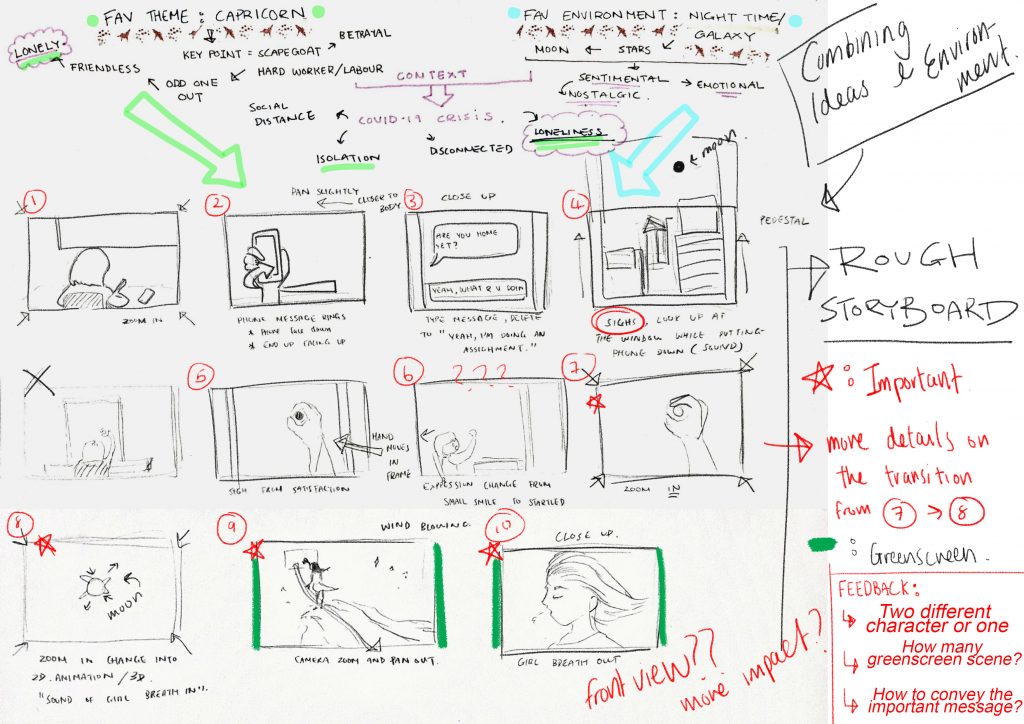 FAV THEME : CAPRICORN
LONELY
FRIENDLESS
KEY POINT = SCAPEGOAT
BETRAYAL
ODD ONE
OUT
HARD WORKER/LABOUR
FAV ENVIRONMENT : NIGHT TIME/
GALAXY
MOON
STARS
SENTIMENTAL
NOSTALGIC.
EMOTIONAL
CONTEXT
COVID-19 CRISIS.
SOCIAL
DISTANCE
ISOLATION
DISCONNECTED
LONELINESS
Combining
Ideas & Environ-
ment.
ROUGH
STORYBOARD
1
ZOOM IN
2
PAN SLIGHTLY
CLOSER TO
BODY
PHONE MESSAGE RINGS
* PHONE FACE DOWN
* END UP FACING UP
3
CLOSE UP
ARE YOU HOME
YET?
YEAH, WHAT R U DOIN
TYPE MESSAGE, DELETE
TO "YEAH, I'M DOING AN
ASSIGNMENT."
4
moon
PEDESTAL
SIGHS, LOOK UP AT
THE WINDOW WHILE PUTTING-
PHONE DOWN (SOUND)
5
HAND
MOVES
IN
FRAME
SIGH FROM SATISFACTION
6
? ? ?
EXPRESSION CHANGE FROM
SMALL SMILE TO STARTLED
7
ZOOM IN
: Important
more details on
the transition
from 7 → 8
: Greenscreen.
8
moon
ZOOM IN CHANGE INTO
2D. ANIMATION / 3D.
"SOUND OF GIRL BREATH IN".
9
WIND BLOWING.
CAMERA ZOOM AND PAN OUT.
10
CLOSE UP.
GIRL BREATH OUT
front view??
more impact?
FEEDBACK:
Two different
character or one
How many
greenscreen scene?
How to convey the
important message?